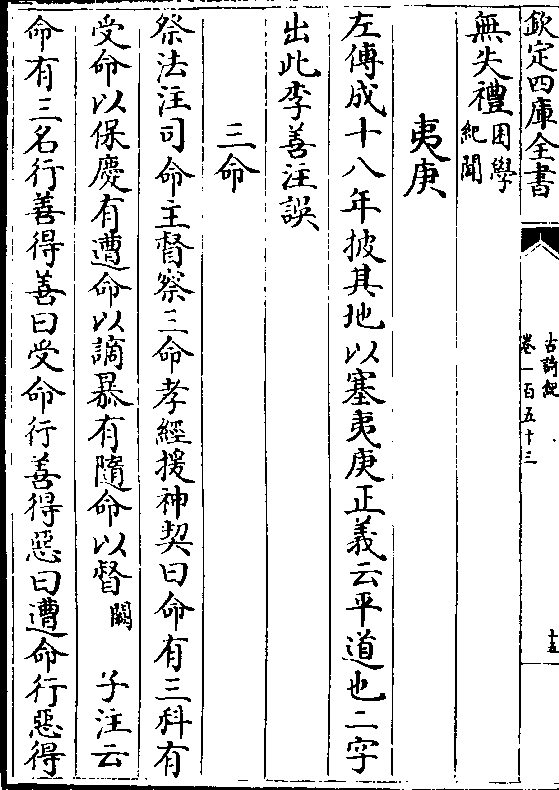 欽定四庫全書
古詩紀
卷一百五十三
十五
無失禮困學紀聞
夷庚
左傳成十八年披其地以塞夷庚正義云平道也二字
出此李善注誤
三命
祭法注司命主督察三命孝經援神契曰命有三科有
受命以保慶有遭命以謫暴有隨命以督闕子注云
命有三名行善得善曰受命行善得惡曰遭命行惡得